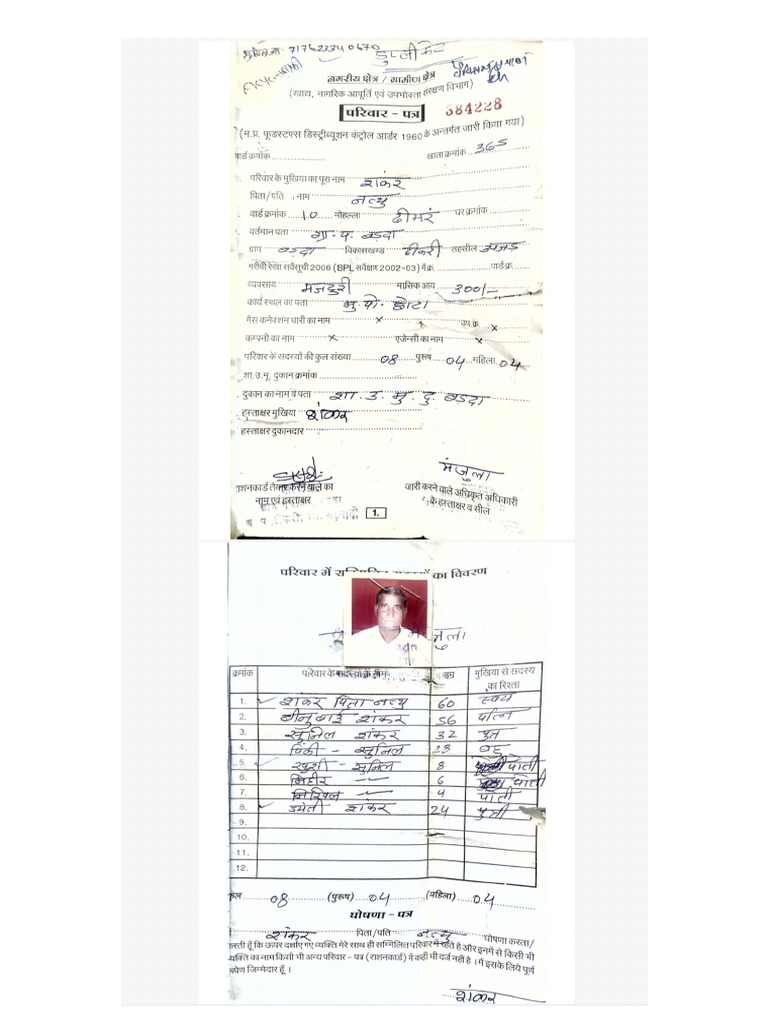 71762340670 डुप्लीकेट
नगरीय क्षेत्र / ग्रामीण क्षेत्र
(खाद्य, नागरिक आपूर्ति एवं उपभोक्ता संरक्षण विभाग)
परिवार - पत्र 384228
(म.प्र. फूडस्टफ्स डिस्ट्रीब्यूशन कंट्रोल आर्डर 1960 के अन्तर्गत जारी किया गया)
वार्ड क्रमांक खाता क्रमांक 365
परिवार के मुखिया का पूरा नाम शंकर
पिता/पति नाम नत्थु
वार्ड क्रमांक 10 मोहल्ला ढीमर घर क्रमांक
वर्तमान पता ग्रा. प. बड़दा
ग्राम बड़दा विकासखण्ड ठीकरी तहसील अंजड
गरीबी रेखा सर्वेसूची 2006 (BPL सर्वेक्षण 2002-03) में क्र. वार्ड क्र.
व्यवसाय मजदुरी मासिक आय 300/-
कार्य स्थल का पता मु. पो. छोटा
गैस कनेक्शन धारी का नाम x x उप.क्र x
कम्पनी का नाम x एजेन्सी का नाम x
परिवार के सदस्यों की कुल संख्या 08 पुरूष 04 महिला 04
शा.उ.मू. दुकान क्रमांक
दुकान का नाम व पता शा. उ. मु. दु. बड़दा
हस्ताक्षर मुखिया शंकर
हस्ताक्षर दुकानदार
मंजुला
राशनकार्ड तैयार करने वाले का जारी करने वाले अधिकृत अधिकारी
नाम एवं हस्ताक्षर के हस्ताक्षर व सील
1.
परिवार में का विवरण
क्रमांक परिवार के सदस्यों के नाम उम्र मुखिया से सदस्य का रिश्ता
1. शंकर पिता नत्थु 60 स्वयं
2. बीनु बाई शंकर 56 पत्नि
3. सुनिल शंकर 32 पुत्र
4. पिंकी - सुनिल 28 बहु
5. खुशी - सुनिल 8 पोती
6. मिहीर 6 पोती
7. 4 पोती
8. ज्योती शंकर 24 पुत्री
9.
10.
11.
12.
कुल 08 (पुरूष) 04 (महिला) 04
घोषणा - पत्र
शंकर पिता/पति नत्थु घोषणा करता/
करती हूँ कि ऊपर दर्शाए गए व्यक्ति मेरे साथ ही सम्मिलित परिवार में रहते है और इनमें से किसी भी
व्यक्ति का नाम किसी भी अन्य परिवार - पत्र (राशनकार्ड) में कहीं भी दर्ज नहीं है । मैं इसके लिये पूर्ण
रूपेण जिम्मेदार हूँ ।
शंकर